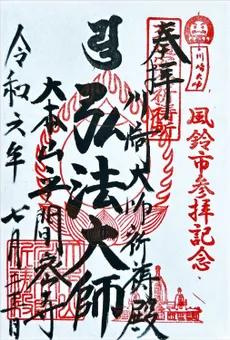 川崎大師
風鈴市参拝記念
奉拝
川崎大師祈祷殿
弘法大師
大本山平間寺
令和六年
七月